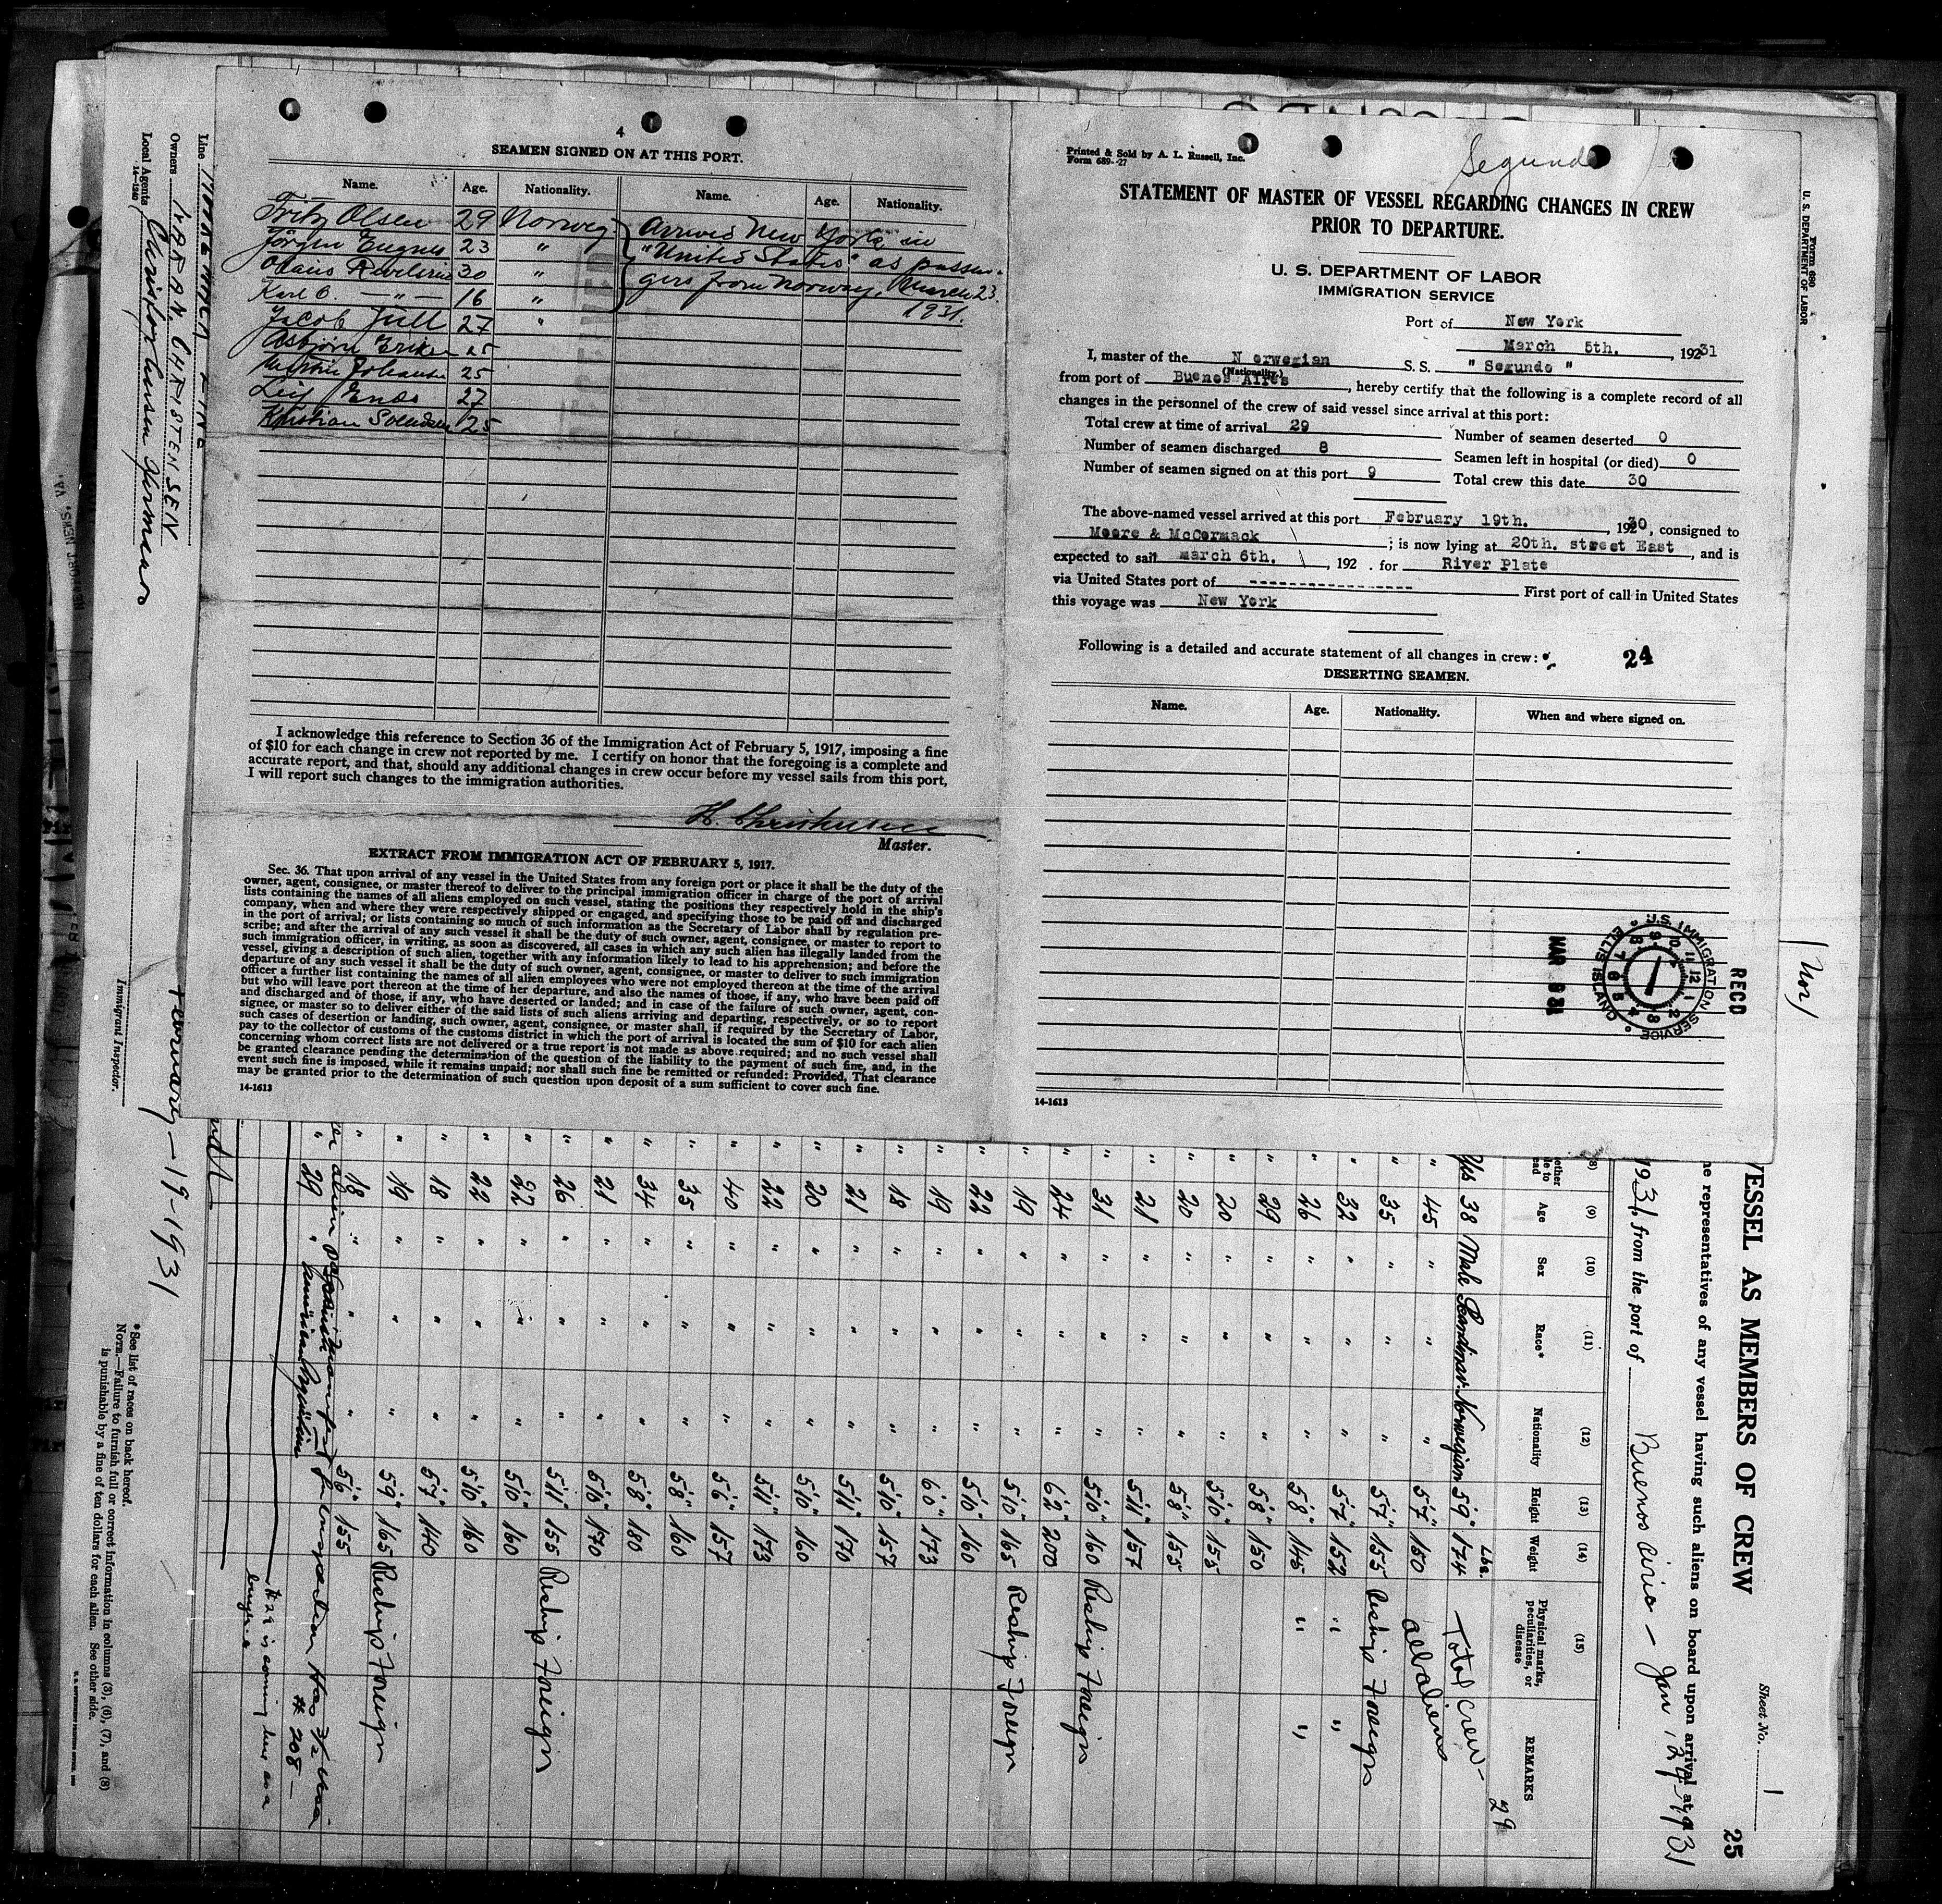 4
SEAMEN SIGNED ON AT THIS PORT.
Name. Age. Nationality. Name. Age. Nationality.
Fritz Olsen 29 Norweg. Arrived New York in
Jörgen 23 " "United States" as passen-
30 " gers from Norway, March 23.
Karl O. — " — 16 " 1931.
Jacob Jull 27 "
Asbjörn 25
25
Leif 27
Kristian 25
I acknowledge this reference to Section 36 of the Immigration Act of February 5, 1917, imposing a fine
of $10 for each change in crew not reported by me. I certify on honor that the foregoing is a complete and
accurate report, and that, should any additional changes in crew occur before my vessel sails from this port,
I will report such changes to the immigration authorities.
H. Christensen
Master.
EXTRACT FROM IMMIGRATION ACT OF FEBRUARY 5, 1917.
Sec. 36. That upon arrival of any vessel in the United States from any foreign port or place it shall be the duty of the
owner, agent, consignee, or master thereof to deliver to the principal immigration officer in charge of the port of arrival
lists containing the names of all aliens employed on such vessel, stating the positions they respectively hold in the ship's
company, when and where they were respectively shipped or engaged, and specifying those to be paid off and discharged
in the port of arrival; or lists containing so much of such information as the Secretary of Labor shall by regulation pre-
scribe; and after the arrival of any such vessel it shall be the duty of such owner, agent, consignee, or master to report to
such immigration officer, in writing, as soon as discovered, all cases in which any such alien has illegally landed from the
vessel, giving a description of such alien, together with any information likely to lead to his apprehension; and before the
departure of any such vessel it shall be the duty of such owner, agent, consignee, or master to deliver to such immigration
officer a further list containing the names of all alien employees who were not employed thereon at the time of the arrival
but who will leave port thereon at the time of her departure, and also the names of those, if any, who have been paid off
and discharged and of those, if any, who have deserted or landed; and in case of the failure of such owner, agent, con-
signee, or master so to deliver either of the said lists of such aliens arriving and departing, respectively, or so to report
such cases of desertion or landing, such owner, agent, consignee, or master shall, if required by the Secretary of Labor,
pay to the collector of customs of the customs district in which the port of arrival is located the sum of $10 for each alien
concerning whom correct lists are not delivered or a true report is not made as above required; and no such vessel shall
be granted clearance pending the determination of the question of the liability to the payment of such fine, and, in the
event such fine is imposed, while it remains unpaid; nor shall such fine be remitted or refunded: Provided, That clearance
may be granted prior to the determination of such question upon deposit of a sum sufficient to cover such fine.
14-1613
Printed & Sold by A. L. Russell, Inc.
Form 689--27
Segundo
STATEMENT OF MASTER OF VESSEL REGARDING CHANGES IN CREW
PRIOR TO DEPARTURE.
U. S. DEPARTMENT OF LABOR
IMMIGRATION SERVICE
Port of New York
March 5th. , 19231
I, master of the N orwegian S. S. " Segundo "
(Nationality.)
from port of Buenos Aires , hereby certify that the following is a complete record of all
changes in the personnel of the crew of said vessel since arrival at this port:
Total crew at time of arrival 29 Number of seamen deserted 0
Number of seamen discharged 8 Seamen left in hospital (or died) 0
Number of seamen signed on at this port 9 Total crew this date 30
The above-named vessel arrived at this port February 19th. , 19230, consigned to
Moore & McCormack ; is now lying at 20th. street East , and is
expected to sail march 6th. , 192 . for River Plate
via United States port of ---------------- First port of call in United States
this voyage was New York
Following is a detailed and accurate statement of all changes in crew:
24
DESERTING SEAMEN.
Name. Age. Nationality. When and where signed on.
RECD
U.S. IMMIGRATION SERVICE
ELLIS ISLAND
MAR 6 31
14-1613
Form 680
U. S. DEPARTMENT OF LABOR
Nor
VESSEL AS MEMBERS OF CREW
Sheet No. 1
25
he representatives of any vessel having such aliens on board upon arrival at
1931, from the port of Buenos Aires - Jan 24-1931
(8) (9) (10) (11) (12) (13) (14) (15)
Age Sex Race* Nationality Height Weight Physical marks, peculiarities, or disease REMARKS
Lbs. 29
Yes 38 Male Scandinav. Norwegian 5'9" 174 Total crew -
" 45 " " " 5'7" 160 all aliens
" 35 " " " 5'7" 155 Reship Foreign
" 32 " " " 5'7" 152 " "
" 26 " " " 5'8" 145 " "
" 29 " " " 5'8" 150
" 20 " " " 5'10" 155
" 20 " " " 5'8" 155
" 21 " " " 5'11" 157
" 31 " " " 5'10" 160 Reship Foreign
" 24 " " " 6'2" 200
" 19 " " " 5'10" 165 Reship Foreign
" 22 " " " 5'10" 160
" 19 " " " 6'0" 173
" 18 " " " 5'10" 157
" 21 " " " 5'11" 170
" 20 " " " 5'10" 160
" 22 " " " 5'11" 173
" 40 " " " 5'6" 157
" 35 " " " 5'8" 160
" 34 " " " 5'8" 180
" 21 " " " 5'10" 170
" 26 " " " 5'11" 155 Reship Foreign
" 22 " " " 5'10" 160
" 22 " " " 5'10" 160
" 18 " " " 5'7" 140
" 19 " " " 5'9" 165 Reship Foreign
" 18 " " " 5'6" 155
" 29 "
# 208 -
# 29 is coming here as a
Line
Owners HAAKAN CHRISTENSEN
Local Agents
14-1240
February - 19-1931
Immigrant Inspector.
*See list of races on back hereof.
NOTE.—Failure to furnish full or correct information in columns (3), (6), (7), and (8)
is punishable by a fine of ten dollars for each alien. See other side.
NEWPORT NEWS, VA.